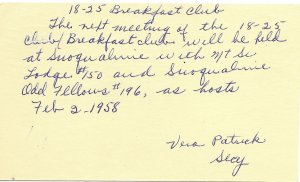 18-25 Breakfast Club
The next meeting of the 18-25
Club/Breakfast club will be held
at Snoqualmie with Mt Si
Lodge #150 and Snoqualmie
Odd Fellows #196, as hosts
Feb 2-1958
Vera Patrick
Secy